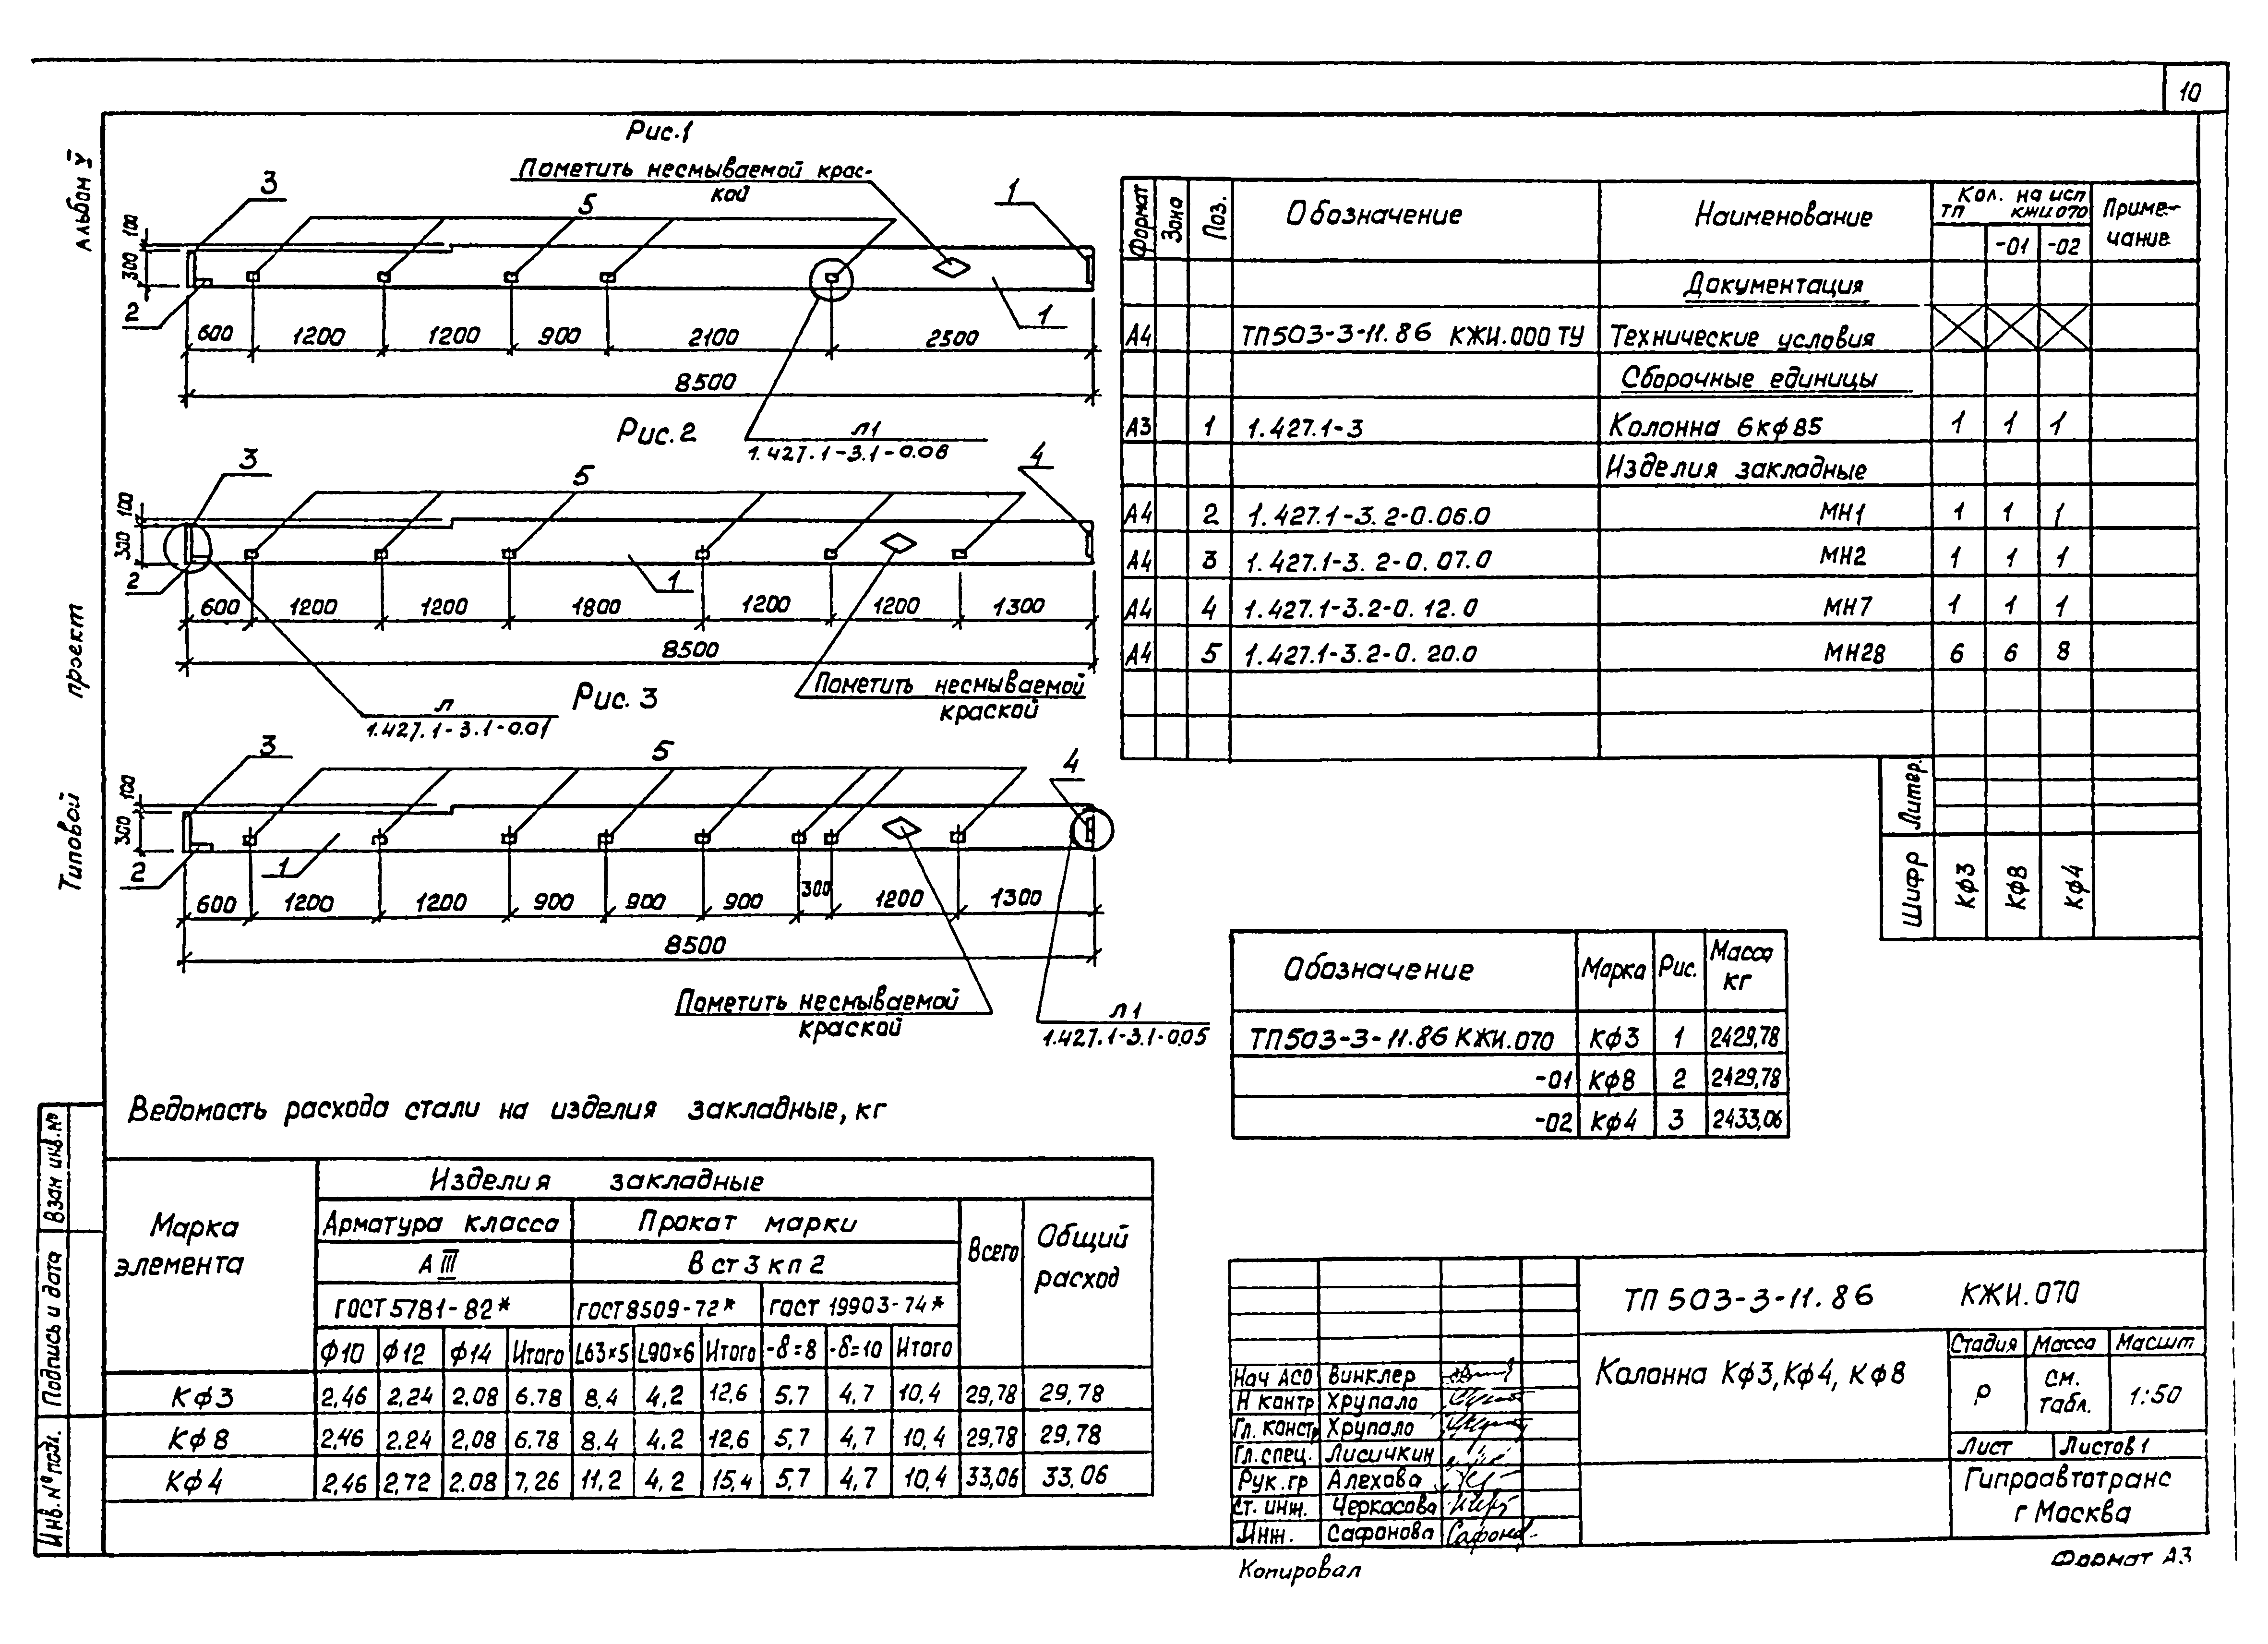 10
Альбом V
Типовой проект
Рис.1
Пометить несмываемой крас-
кой
3
5
1
100
300
2
1
600 1200 1200 900 2100 2500
8500
Л1
1.427.1-3.1-0.08
Рис. 2
3
5
4
100
300
2
1
600 1200 1200 1800 1200 1200 1300
8500
Пометить несмываемой
краской
Л
1.427.1-3.1-0.01
Рис. 3
3
5
4
100
300
2
1
600 1200 1200 900 900 900 300 1200 1300
8500
Пометить несмываемой
краской
Л1
1.427.1-3.1-0.05
Формат Зона Поз. Обозначение Наименование Кол. на исп Приме-
ТП КЖИ 070 чание
-01 -02
Документация
А4 ТП503-3-11.86 КЖИ.000 ТУ Технические условия
Сборочные единицы
А3 1 1.427.1-3 Колонна 6кф85 1 1 1
Изделия закладные
А4 2 1.427.1-3.2-0.06.0 МН1 1 1 1
А4 3 1.427.1-3.2-0.07.0 МН2 1 1 1
А4 4 1.427.1-3.2-0.12.0 МН7 1 1 1
А4 5 1.427.1-3.2-0.20.0 МН28 6 6 8
Литер.
Шифр КФ3 КФ8 КФ4
Обозначение Марка Рис. Масса
кг
ТП503-3-11.86 КЖИ.070 КФ3 1 2429,78
-01 КФ8 2 2429,78
-02 КФ4 3 2433,06
Ведомость расхода стали на изделия закладные, кг
Марка
элемента
Изделия закладные
Арматура класса Прокат марки Всего Общий
расход
А III В ст 3 кп 2
ГОСТ 5781-82* ГОСТ 8509-72* ГОСТ 19903-74*
Ф10 Ф12 Ф14 Итого L63×5 L90×6 Итого -δ=8 -δ=10 Итого
КФ3 2,46 2,24 2,08 6.78 8,4 4,2 12,6 5,7 4,7 10,4 29,78 29,78
КФ8 2,46 2,24 2,08 6.78 8.4 4,2 12,6 5,7 4,7 10,4 29,78 29,78
КФ4 2,46 2,72 2.08 7,26 11,2 4,2 15,4 5,7 4,7 10,4 33,06 33,06
Взам инв.№
Подпись и дата
Инв.№ подл.
ТП 503-3-11.86 КЖИ.070
Колонна КФ3, КФ4, КФ8
Стадия Масса Масшт
Р см.
табл. 1:50
Лист Листов 1
Гипроавтотранс
г Москва
Нач АСО Винклер
Н контр Хрупало
Гл. констр Хрупало
Гл.спец. Лисичкин
Рук.гр Алехова
Ст. инж. Черкасова
Инж. Сафонова
Копировал
Формат А3